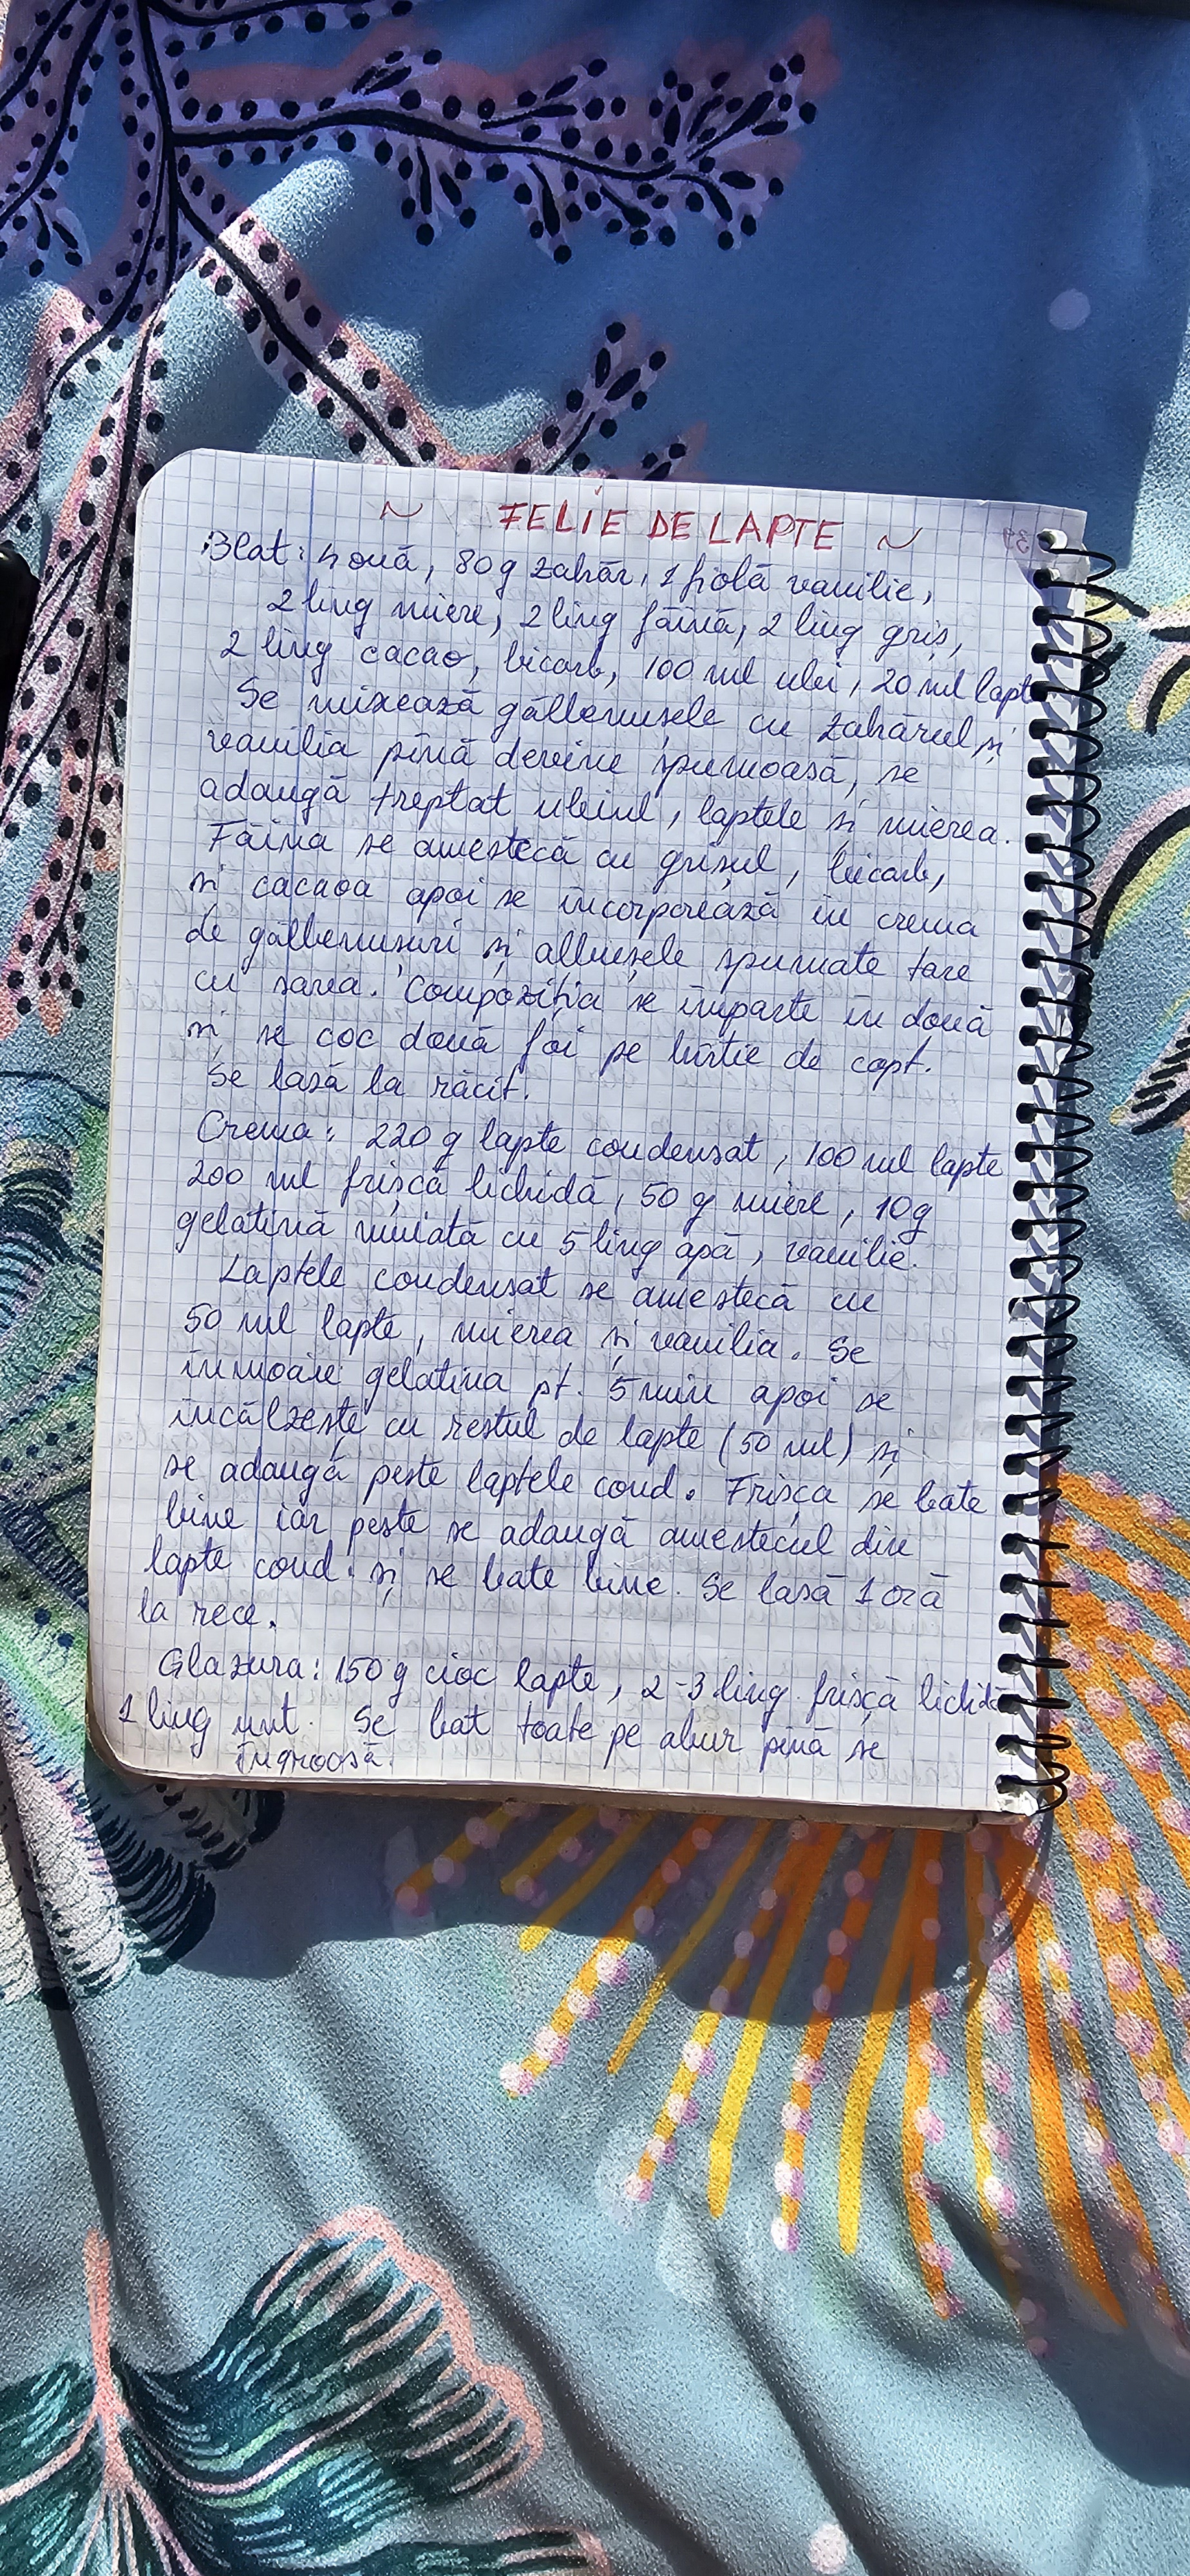 ~ FELIE DE LAPTE ~
Blat: 4 ouă, 80 g zahăr, 1 fiolă vanilie,
2 ling miere, 2 ling făină, 2 ling griș,
2 ling cacao, bicarb, 100 ml ulei, 20 ml lapte
Se mixează gălbenușele cu zahărul și
vanilia pînă devine spumoasă, se
adaugă treptat uleiul, laptele și mierea.
Făina se amestecă cu grișul, bicarb,
și cacaoa apoi se incorporează in crema
de gălbenușuri și albușele spumate tare
cu sarea. Compoziția se imparte in două
și se coc două foi pe hîrtie de copt.
Se lasă la răcit.
Crema: 220 g lapte condensat, 100 ml lapte
200 ml frișcă lichidă, 50 g miere, 10g
gelatină muiată cu 5 ling apă, vanilie.
Laptele condensat se amestecă cu
50 ml lapte, mierea și vanilia. Se
inmoaie gelatina pt. 5 min apoi se
incălzește cu restul de lapte (50 ml) și
se adaugă peste laptele cond. Frișca se bate
bine iar peste se adaugă amestecul din
lapte cond. și se bate bine. Se lasă 1 oră
la rece.
Glazura: 150 g cioc lapte, 2-3 ling. frișcă lichidă
1 ling unt. Se bat toate pe abur pînă se
îngroașă.